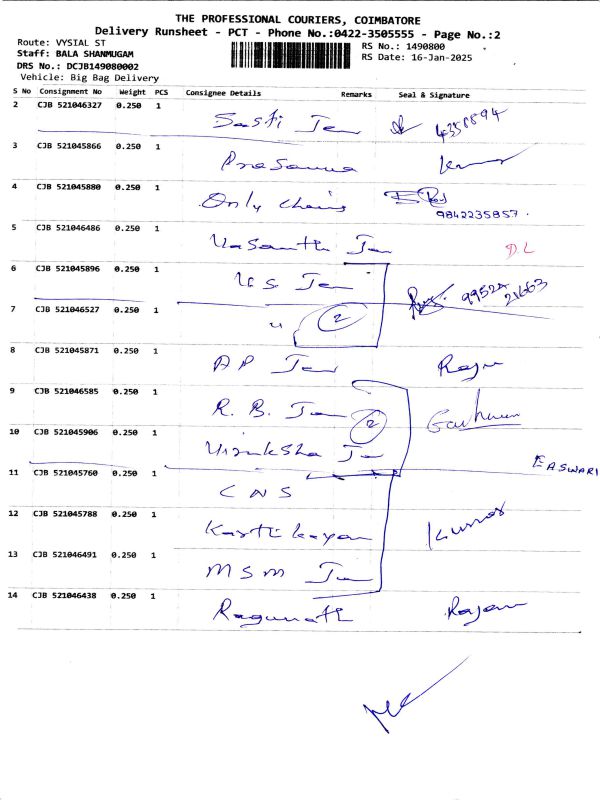 THE PROFESSIONAL COURIERS, COIMBATORE
Delivery Runsheet - PCT - Phone No.:0422-3505555 - Page No.:2
Route: VYSIAL ST
RS No.: 1490800
Staff: BALA SHANMUGAM
RS Date: 16-Jan-2025
DRS No.: DCJB149080002
Vehicle: Big Bag Delivery
S No Consignment No Weight PCS Consignee Details Remarks Seal & Signature
2 CJB 521046327 0.250 1 Sasti Jew 4358894
3 CJB 521045866 0.250 1 Prasanna Kumar
4 CJB 521045880 0.250 1 Only chains
9842235857.
5 CJB 521046486 0.250 1 Vasanth Jew DL
6 CJB 521045896 0.250 1 V S Jew 99522
21663
7 CJB 521046527 0.250 1 " 2
8 CJB 521045871 0.250 1 A P Jew Raju
9 CJB 521046585 0.250 1 R. B. Jew 2
10 CJB 521045906 0.250 1 Jew
EASWARI
11 CJB 521045760 0.250 1 C N S
12 CJB 521045788 0.250 1 Karthikeyan Kumar
13 CJB 521046491 0.250 1 M S M Jew
14 CJB 521046438 0.250 1 Ragunath Rajan